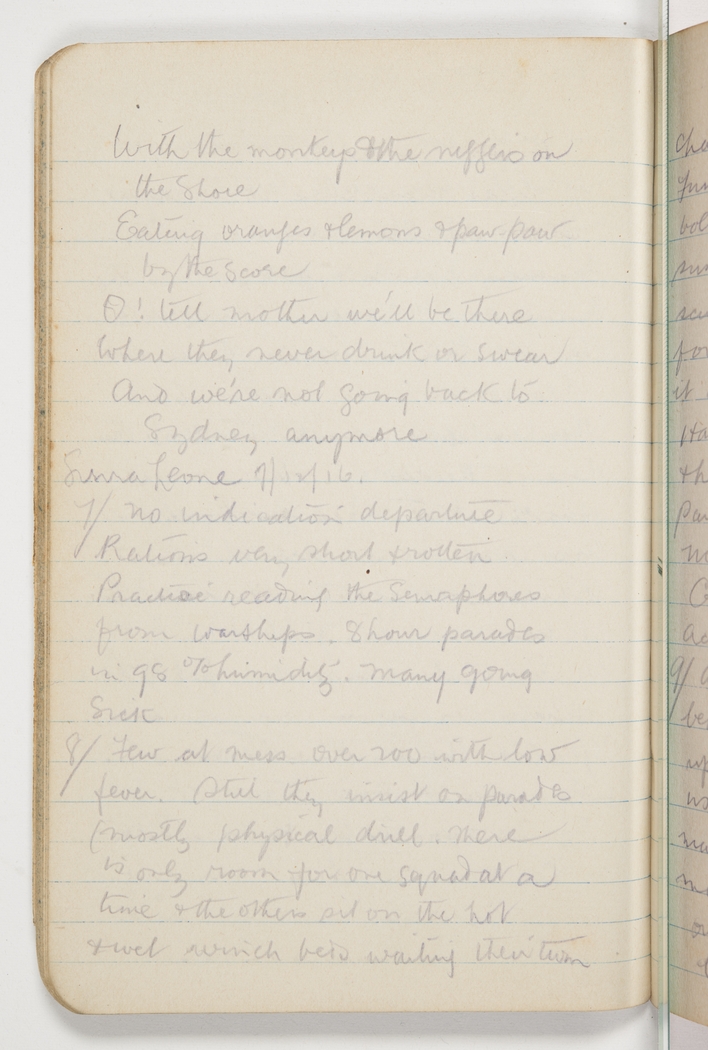 With the monkeys & the niggers on
the shore
Eating oranges & lemons & paw-paw
by the score
O! tell mother we'll be there
Where they never drink or swear
And we're not going back to
Sydney anymore
Sierra Leone 7/12/16.
7/ No indication departure
Rations very short & rotten
Practice reading the Semaphores
from warships. 8 hour parades
in 98 % humidity. Many going
Sick
8/ Few at mess over 200 with low
fever. Still they insist on parades
(mostly physical drill. There
is only room for one squad at a
time & the others sit on the hot
& wet winch beds waiting their turn